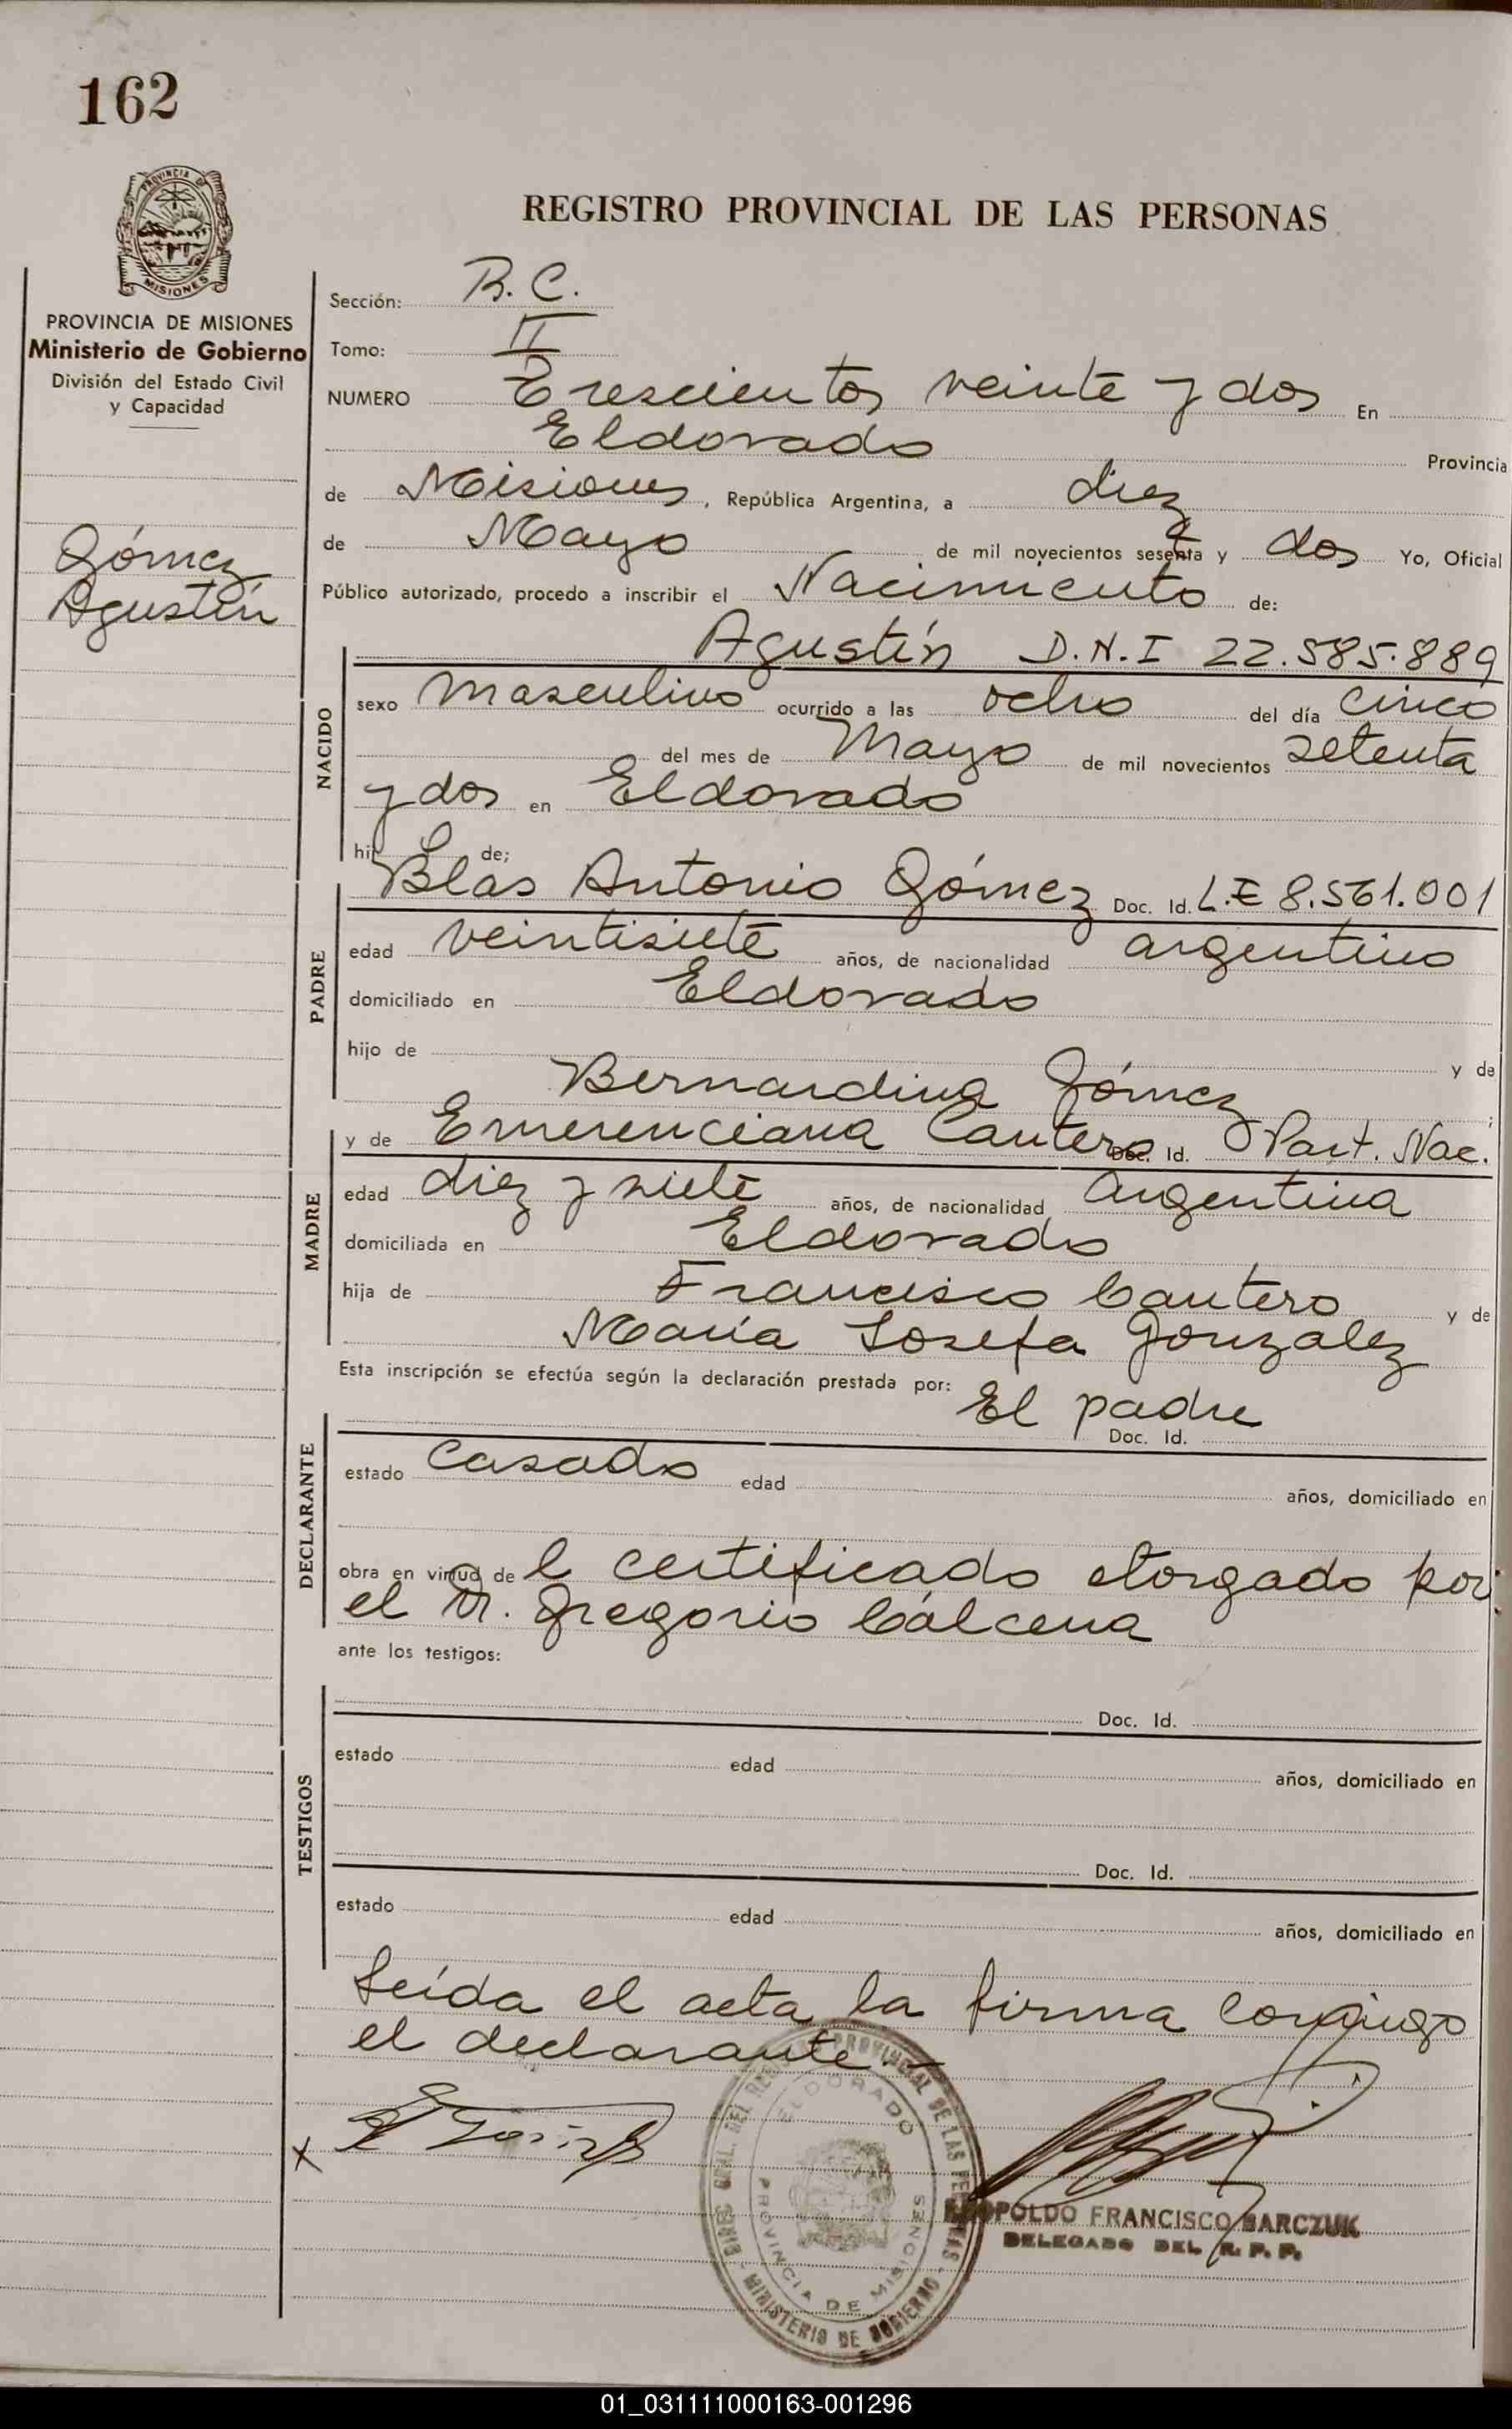 162
PROVINCIA DE
MISIONES
PROVINCIA DE MISIONES
Ministerio de Gobierno
División del Estado Civil
y Capacidad
Gómez
Agustín
REGISTRO PROVINCIAL DE LAS PERSONAS
Sección: R. C.
Tomo: II
NUMERO Trescientos veinte y dos En
Eldorado Provincia
de Misiones, República Argentina, a diez
de Mayo de mil novecientos sesenta y dos Yo, Oficial
Público autorizado, procedo a inscribir el Nacimiento de:
NACIDO
Agustín D.N.I 22.585.889
sexo masculino ocurrido a las ocho del día cinco
del mes de Mayo de mil novecientos setenta
y dos en Eldorado
hijo de;
PADRE
Blas Antonio Gómez Doc. Id. L.E 8.561.001
edad veintisiete años, de nacionalidad argentino
domiciliado en Eldorado
hijo de y de
Bernardina Gómez ;
MADRE
y de Emerenciana Cantero Doc. Id. Part. Nac.
edad diez y siete años, de nacionalidad Argentina
domiciliada en Eldorado
hija de Francisco Cantero y de
María Josefa Gonzalez
Esta inscripción se efectúa según la declaración prestada por:
DECLARANTE
El padre
Doc. Id.
estado Casado edad años, domiciliado en
obra en virtud de l certificado otorgado por
el Dr. Gregorio Cálcena
ante los testigos:
TESTIGOS
Doc. Id.
estado edad años, domiciliado en
Doc. Id.
estado edad años, domiciliado en
Leída el acta la firma conmigo
el declarante.-
x
DIREC. GRAL. DEL REGISTRO PROVINCIAL DE LAS PERSONAS - MINISTERIO DE GOBIERNO -
ELDORADO
PROVINCIA DE MISIONES
LEOPOLDO FRANCISCO BARCZUK
DELEGADO DEL R. P. P.
01_031111000163-001296